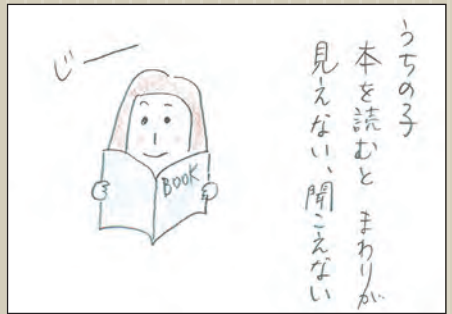 うちの子
本を読むと まわりが
見えない、聞こえない
じー
BOOK